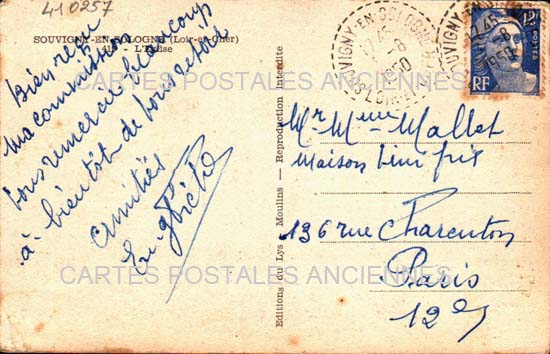 410257
SOUVIGNY-EN-SOLOGNE (Loir-et-Cher)
L'Eglise
Bien reçu
ma commission
vous remercie beaucoup
à bientôt de vous revoir
amitiés
Editions du Lys - Moulins - Reproduction Interdite
SOUVIGNY-EN-SOLOGNE
17 45
8
1950
LOIR-ET-CHER
12F
RF
POSTES
Mr Mme Mallet
maison
136 rue Charenton
Paris
12e
CARTES POSTALES ANCIENNES
CARTES POSTALES ANCIENNES